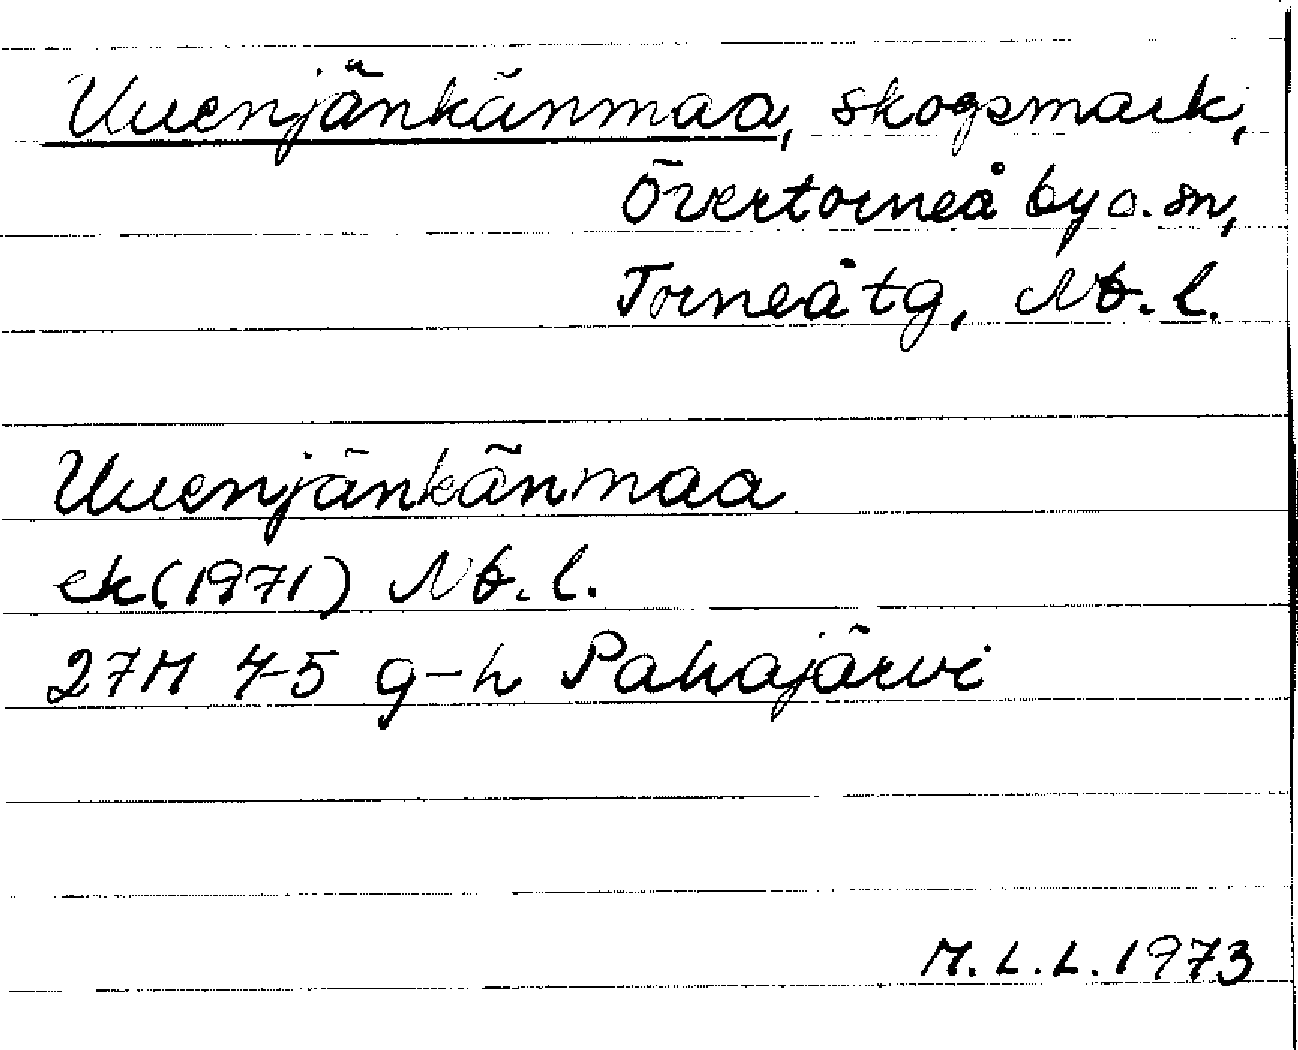 Uuenjänkänmaa, skogsmark,
Övertorneå by o. sn,
Torneå tg, Nb. l.
Uuenjänkänmaa
ek (1971) Nb. l.
27M 4-5 g-h Pahajärvi
M.L.L. 1973